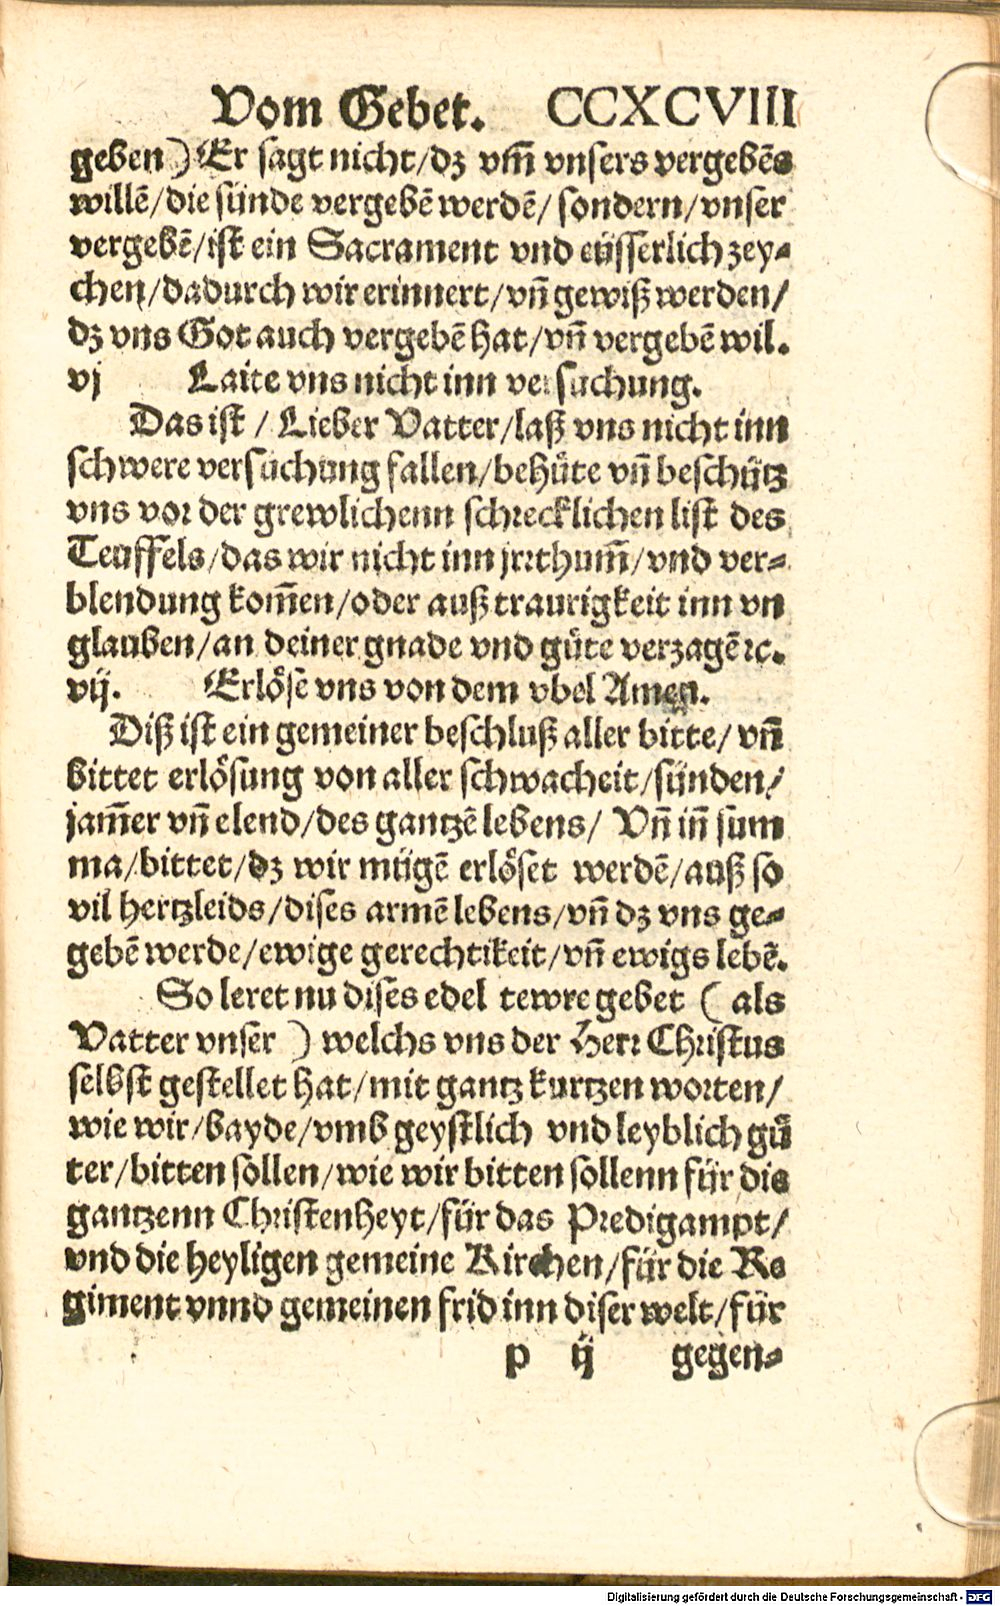 Vom Gebet. CCXCVIII
geben) Er sagt nicht/dz vm̃ vnsers vergebẽs
willẽ/die sünde vergebẽ werdẽ/ sondern/vnser
vergebẽ/ist ein Sacrament vnd eüsserlich zey-
chen/dadurch wir erinnert/vñ gewiß werden/
dz vns Got auch vergebẽ hat/vñ vergebẽ wil.
vj Laite vns nicht inn versuchung.
Das ist / Lieber Vatter/laß vns nicht inn
schwere versuchung fallen/behüte vñ beschütz
vns vor der grewlichenn schrecklichen list des
Teuffels/das wir nicht inn jrrthum̃/vnd ver-
blendung kom̃en/oder auß traurigkeit inn vn
glauben/an deiner gnade vnd güte verzagẽ ꝛc.
vij. Erlöse vns von dem vbel Amen.
Diß ist ein gemeiner beschluß aller bitte/ vñ
bittet erlösung von aller schwacheit/sünden/
jam̃er vñ elend/des gantzẽ lebens/ Vñ iñ sum
ma/bittet/dz wir mügẽ erlöset werdẽ/auß so
vil hertzleids/dises armẽ lebens/vñ dz vns ge-
gebẽ werde/ewige gerechtikeit/vñ ewigs lebẽ.
So leret nu dises edel tewre gebet ( als
Vatter vnser ) welchs vns der Herr Christus
selbst gestellet hat/mit gantz kurtzen worten/
wie wir/bayde/vmb geystlich vnd leyblich gü
ter/bitten sollen/wie wir bitten sollenn für die
gantzenn Christenheyt/für das Predigampt/
vnd die heyligen gemeine Kirchen/für die Re
giment vnnd gemeinen frid inn diser welt/für
p ij gegen-
Digitalisierung gefördert durch die Deutsche Forschungsgemeinschaft - DFG